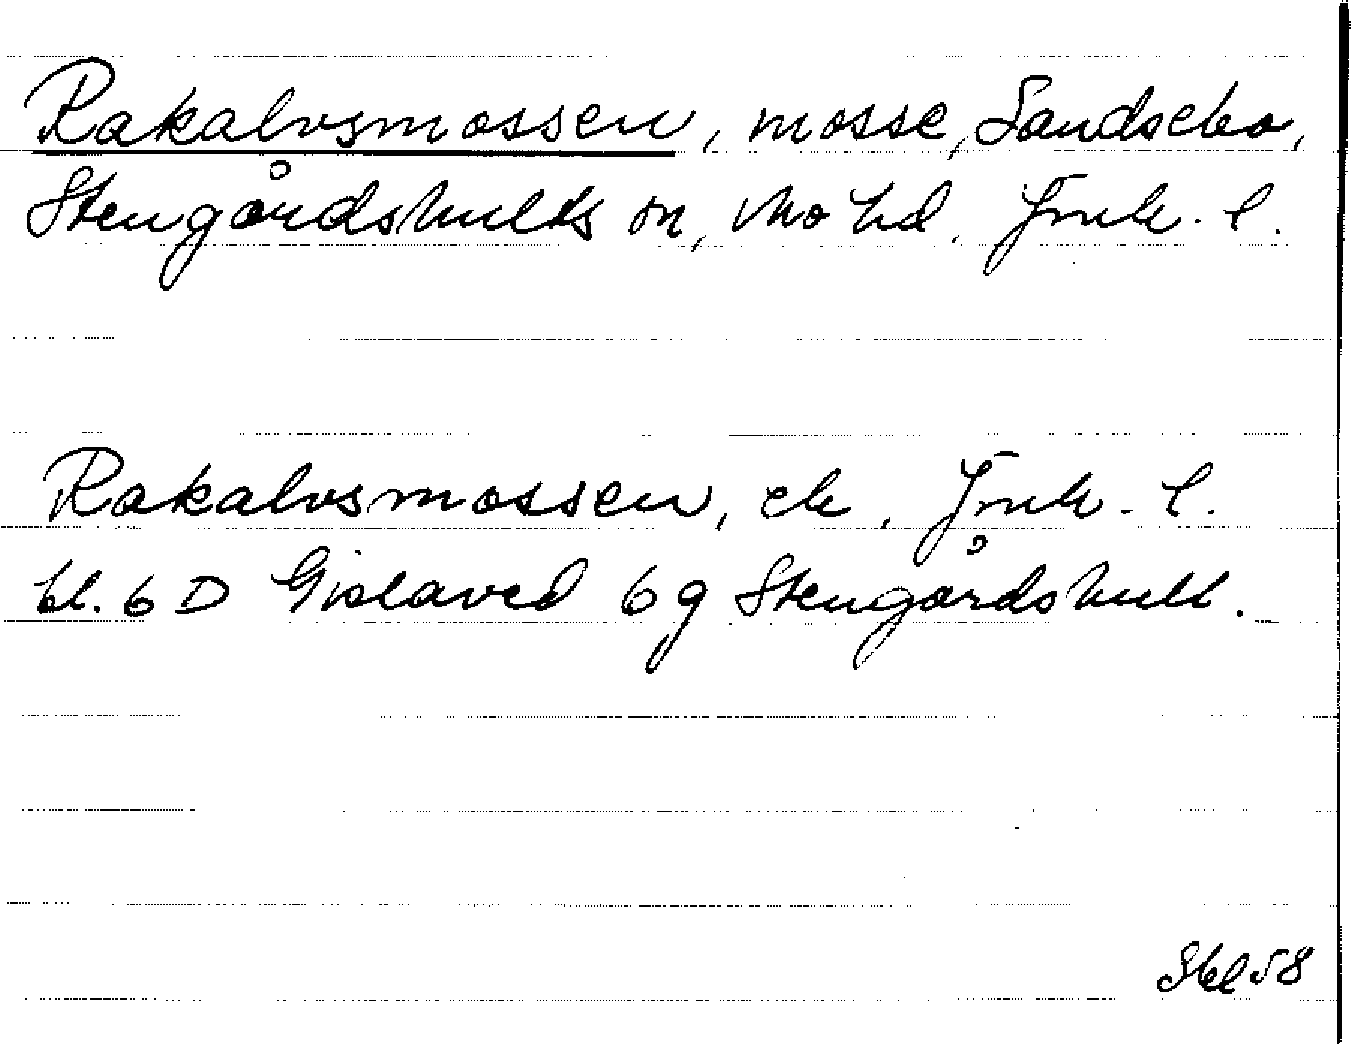 Rakalvsmossen, mosse, Sandsebo,
Stengårdshults sn, Mo hd, Jmk. l.
Rakalvsmossen, ek, Jmk. l.
bl. 6 D Gislaved 6 g Stengårdshult.
Stbl 58